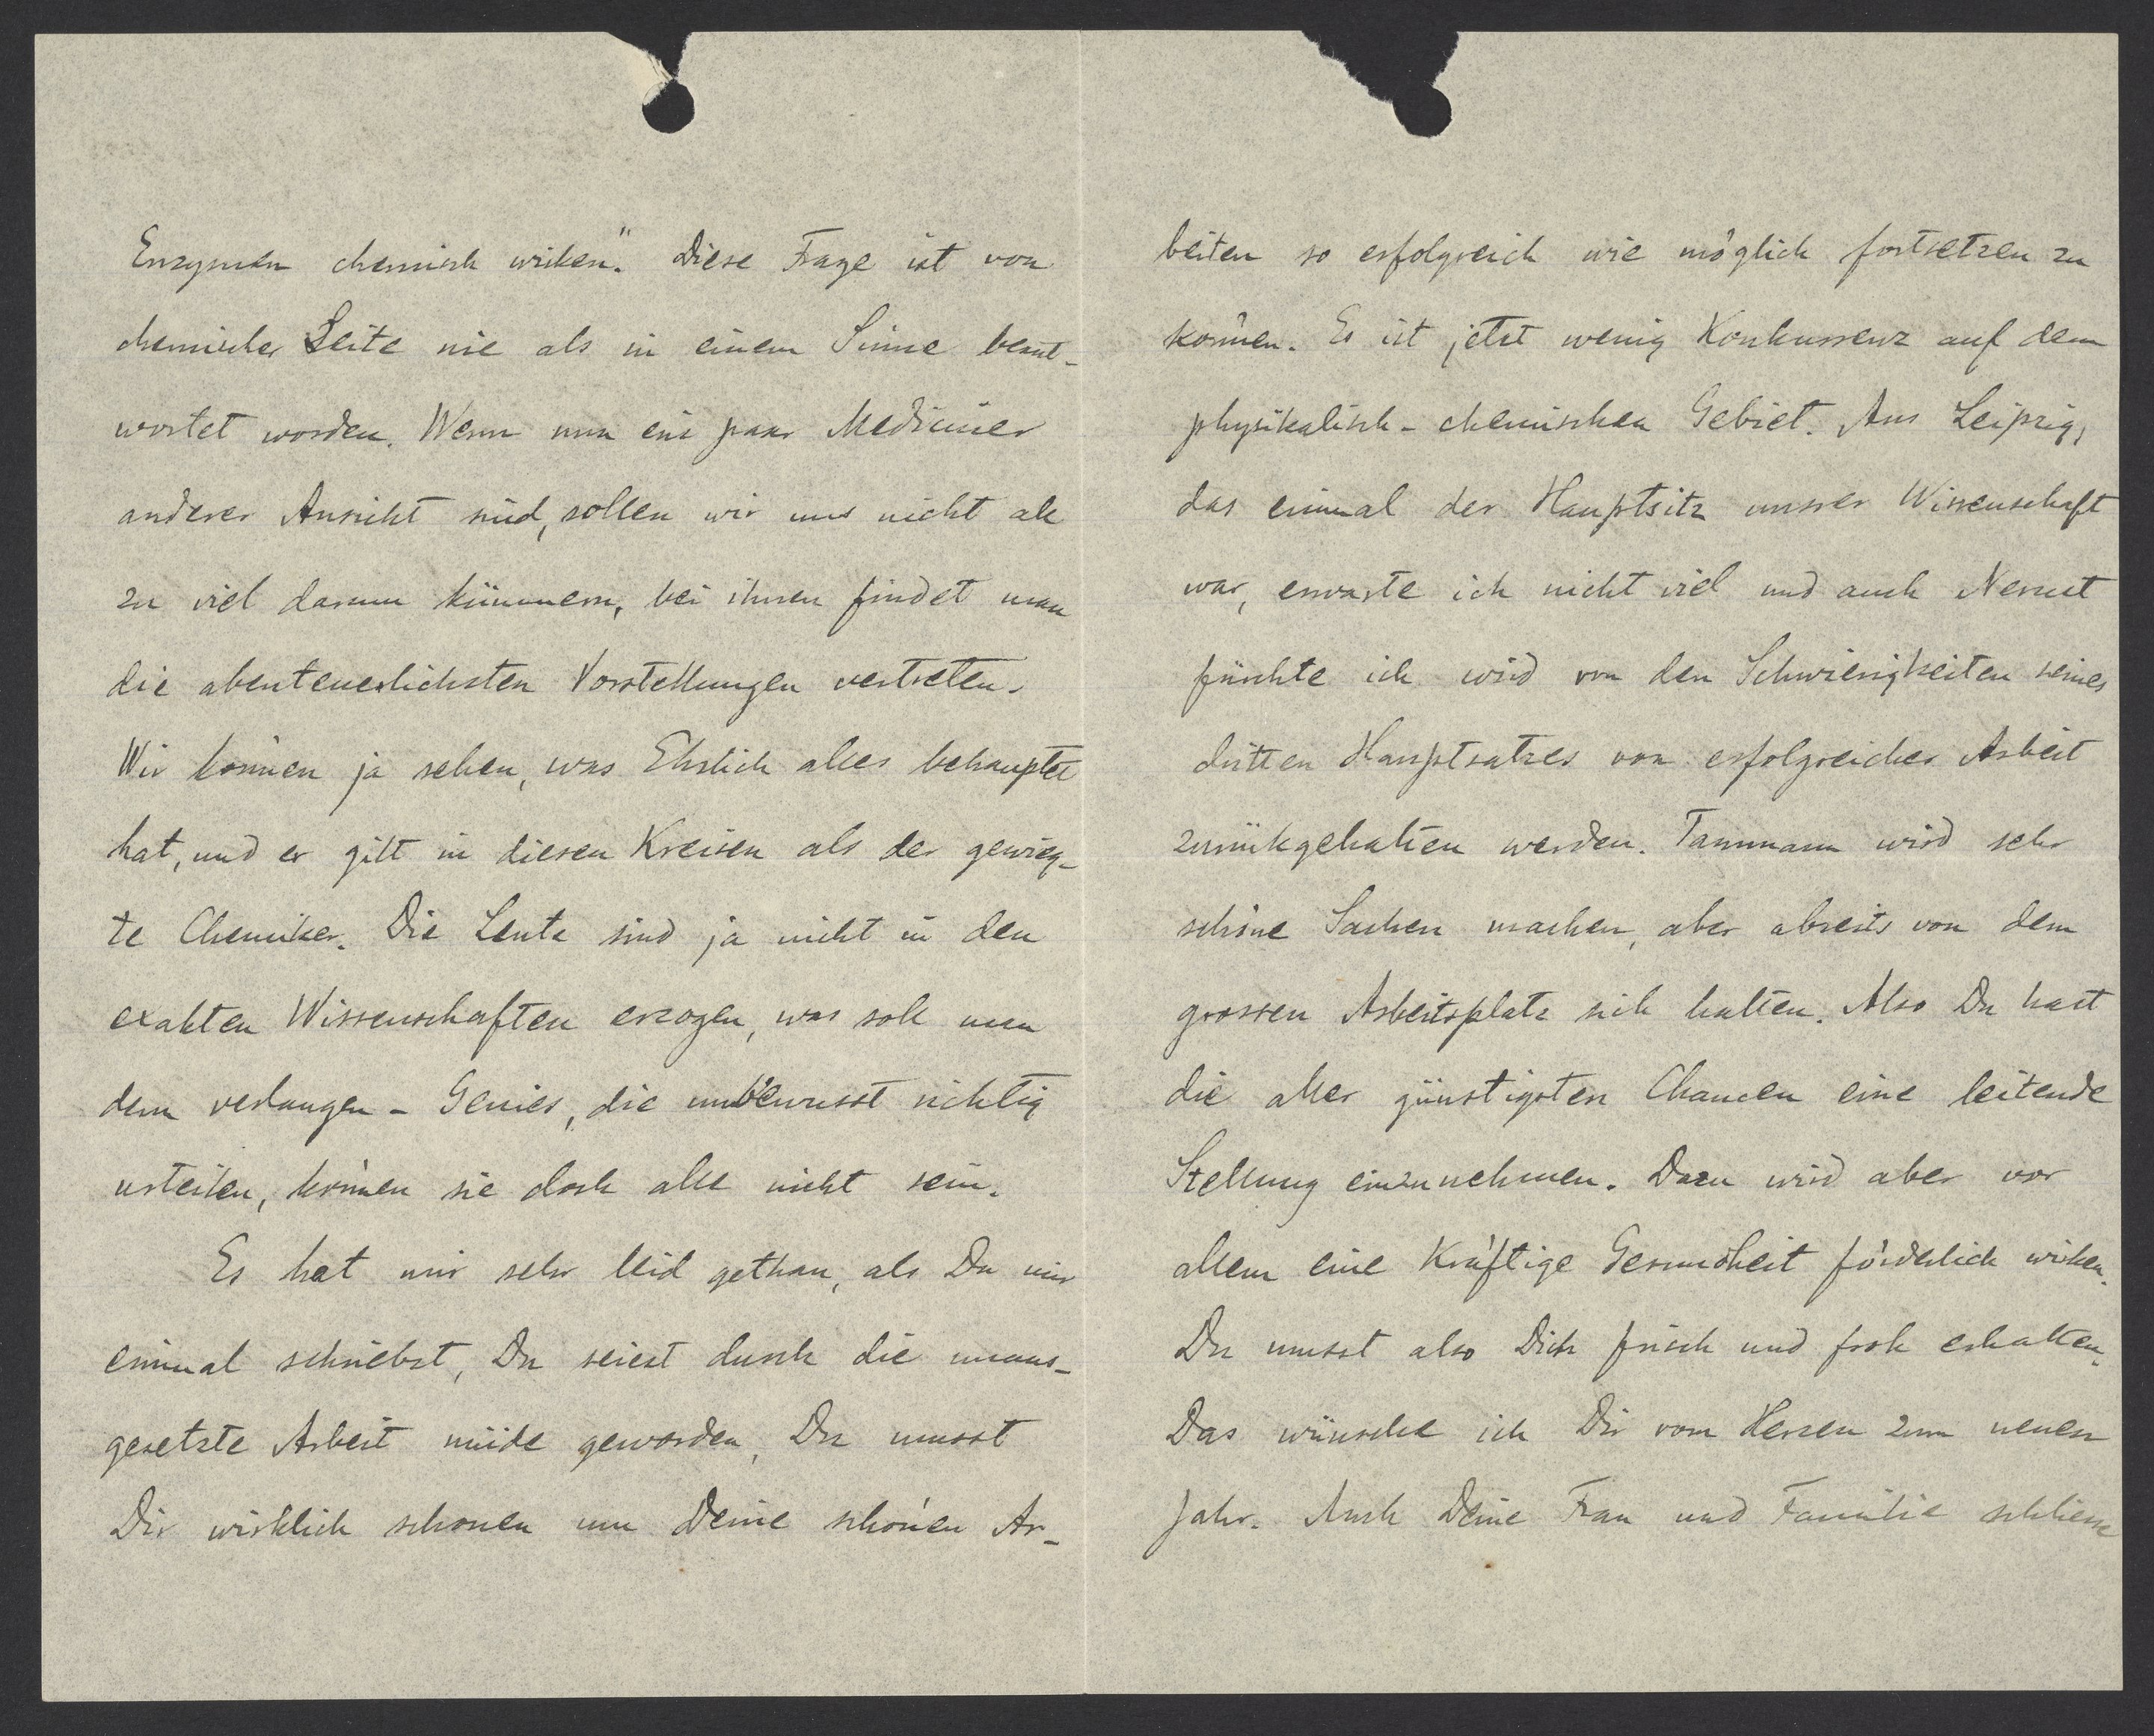 Enzymen chemisch wirken." Diese Frage ist von
chemischer Seite nie als in einem Sinne beant-
wortet worden. Wenn nun ein paar Mediciner
anderer Ansicht sind, sollen wir uns nicht all
zu viel darum kümmern, bei ihnen findet man
die abenteuerlichsten Vorstellungen vertreten.
Wir können ja sehen, was Ehrlich alles behauptet
hat, und er gilt in diesen Kreisen als der gewieg-
te Chemiker. Die Leute sind ja nicht in den
exakten Wissenschaften erzogen, was soll man
denn verlangen - Genies, die unbewusst richtig
urteilen, können sie doch alle nicht sein.
Es hat mir sehr leid gethan, als Du mir
einmal schriebst, Du seiest durch die unaus-
gesetzte Arbeit müde geworden, Du musst
Dir wirklich schonen um Deine schönen Ar-
beiten so erfolgreich wie möglich fortsetzen zu
können. Es ist jetzt wenig Konkurrenz auf dem
physikalisch-chemischen Gebiet. Aus Leipzig,
das einmal der Hauptsitz unsrer Wissenschaft
war, erwarte ich nicht viel und auch Nernst
fürchte ich wird von den Schwierigkeiten seines
dritten Hauptsatzes von erfolgreicher Arbeit
zurückgehalten werden. Tammann wird sehr
schöne Sachen machen, aber abseits von dem
grossen Arbeitsplatz sich halten. Also Du hast
die aller günstigsten Chancen eine leitende
Stellung einzunehmen. Dazu wird aber vor
allem eine kräftige Gesundheit förderlich wirken.
Du musst also Dich frisch und froh erhalten.
Das wünsche ich Dir vom Herzen zum neuen
Jahr. Auch Deine Frau und Familie schliesse